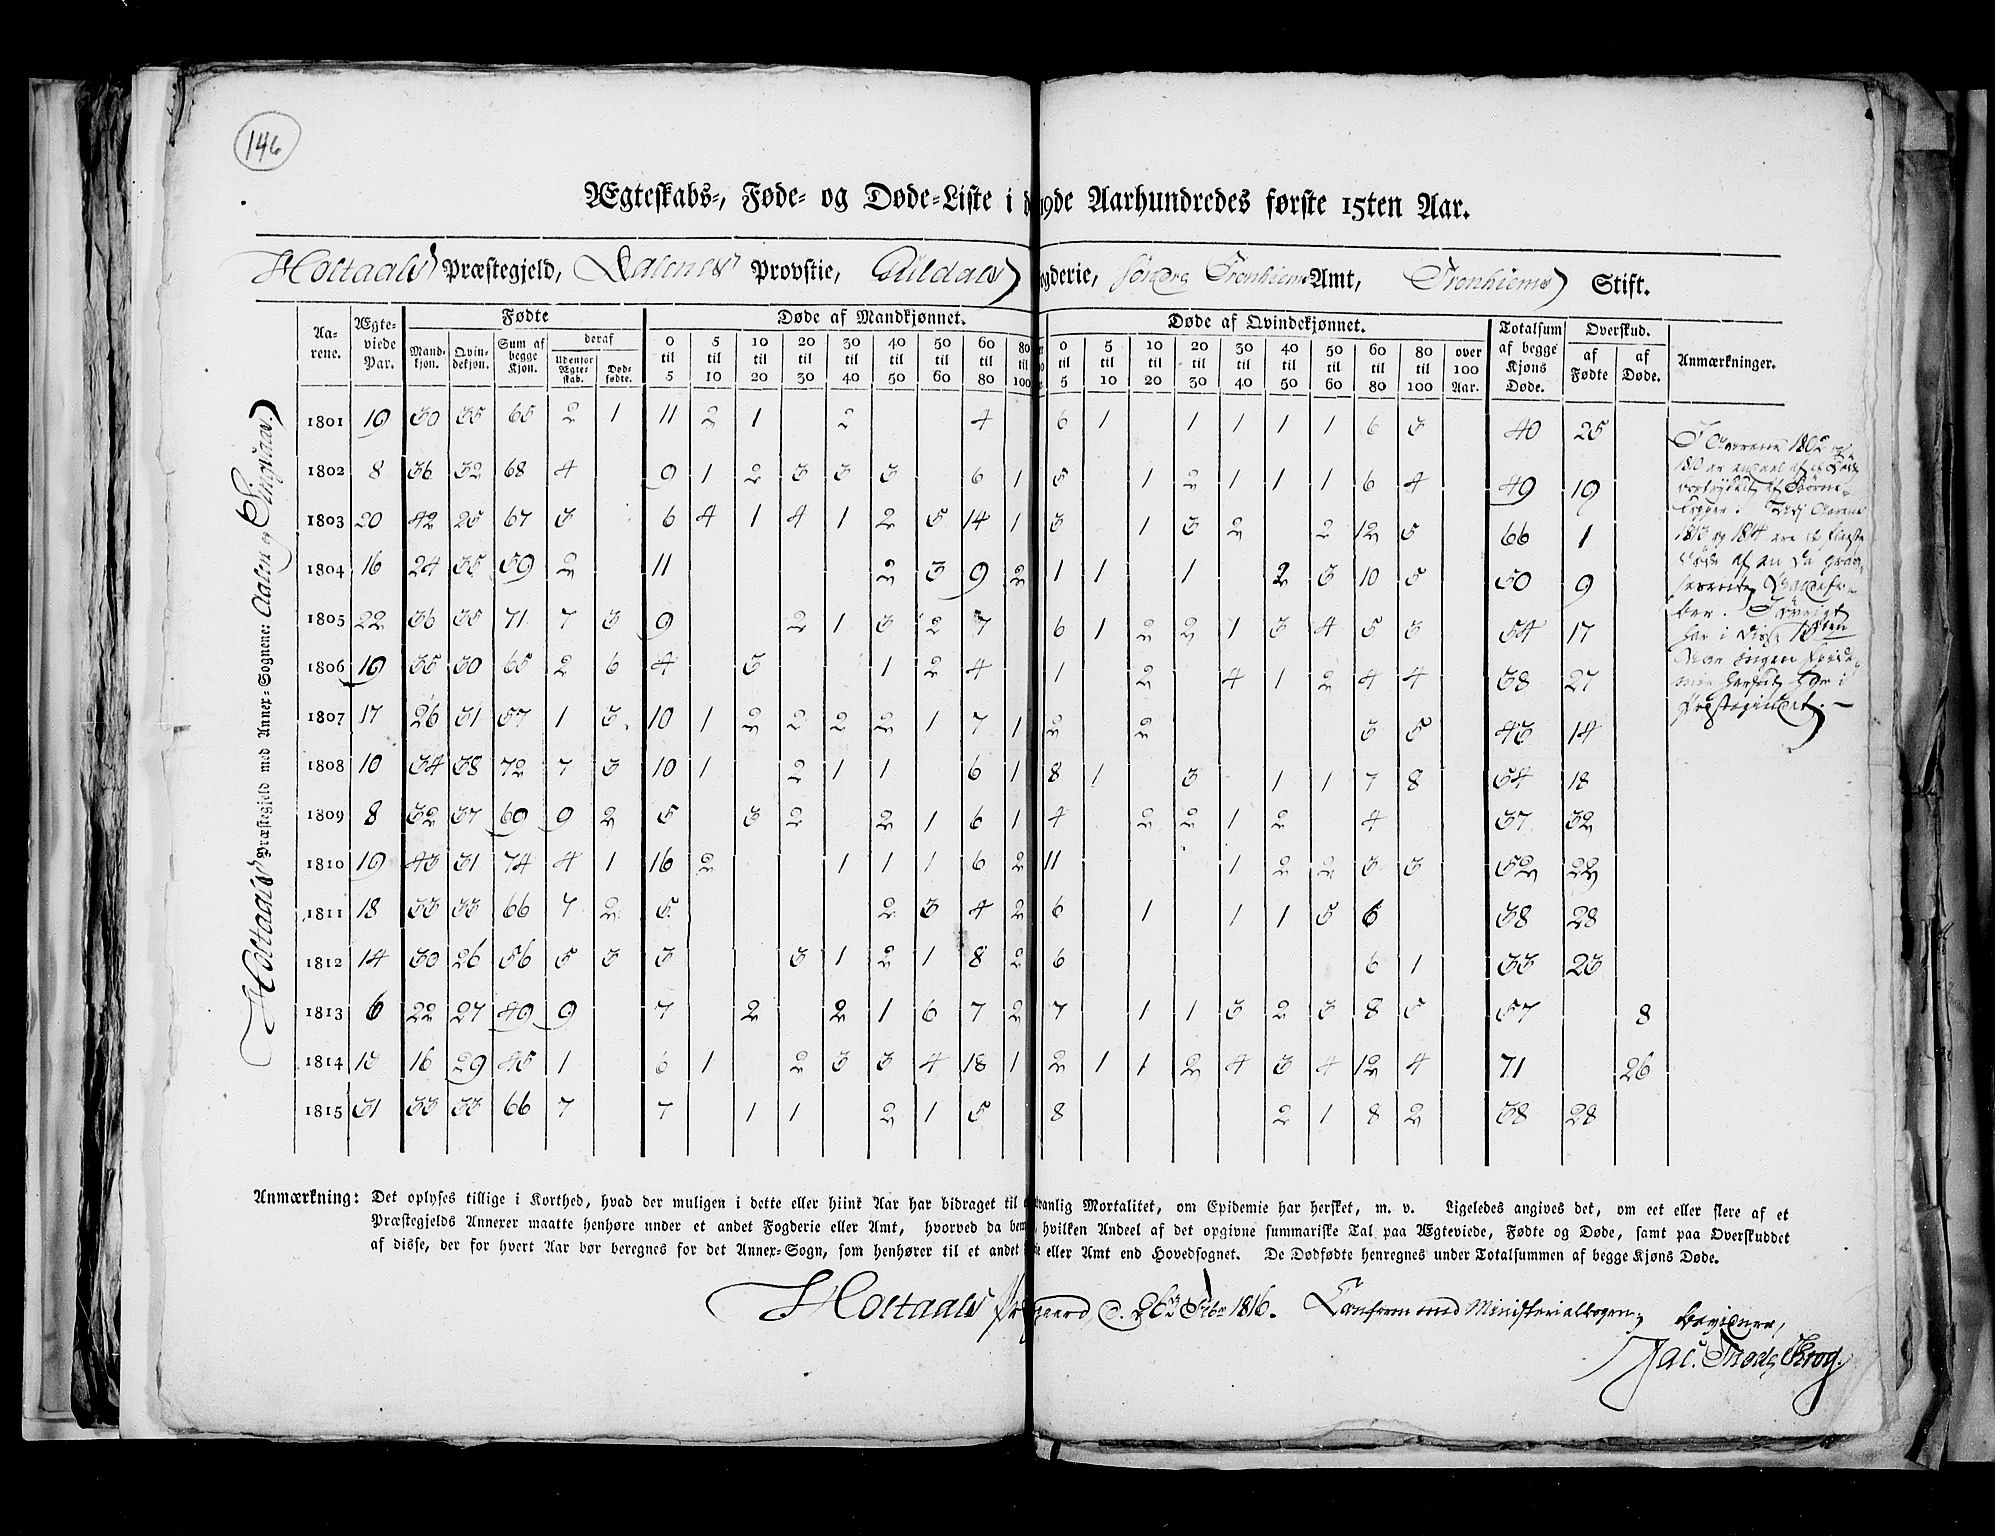 146
Ægteskabs-, Føde- og Døde-Liste i d 19de Aarhundredes første 15ten Aar.
Holtaals Præstegjeld, Dalenes Provstie, Guldals gderie, søndre Tronhiems Amt, Tronhiems Stift.
Holtaals Præstegjeld med Annex-Sognene: Aalen og Singsaas.
Aarene. Ægteviede Par. Fødte Døde af Mandkjønnet. Døde af Qvindekjønnet. Totalsum af begge Kjøns Døde. Overskud. Anmærkninger.
Mandkjøn. Qvindekjøn. Sum af begge Kjøn. deraf Udenfor Ægteskab. Dødfødte. 0 til 5 5 til 10 10 til 20 20 til 30 30 til 40 40 til 50 50 til 60 60 til 80 80 til 100 0 til 5 5 til 10 10 til 20 20 til 30 30 til 40 40 til 50 50 til 60 60 til 80 80 til 100 over 100 Aar. af Fødte af Døde.
1801 19 30 35 65 2 1 11 2 1 2 4 6 1 1 1 1 1 6 3 40 25
1802 8 36 32 68 4 9 1 2 3 3 3 6 1 5 1 2 1 1 1 6 4 49 19
1803 20 42 25 67 3 6 4 1 4 1 2 5 14 1 3 1 3 2 2 12 5 66 1
1804 16 24 35 59 2 11 2 3 9 2 1 1 1 2 3 10 5 50 9
1805 22 36 35 71 7 3 9 2 1 3 2 7 6 1 2 2 1 3 4 5 3 54 17
1806 19 35 30 65 2 6 4 3 1 2 4 1 2 4 1 2 4 4 38 27
1807 17 26 31 57 1 3 10 1 2 2 2 2 1 7 1 2 2 3 5 43 14
1808 10 34 38 72 7 3 10 1 2 1 1 6 1 8 1 3 1 1 7 8 54 18
1809 8 32 37 69 9 2 5 3 2 2 1 6 1 4 2 2 1 2 4 37 32
1810 19 43 31 74 4 1 16 2 1 1 1 6 2 11 1 2 2 3 3 52 22
1811 18 33 33 66 7 2 5 2 3 4 2 6 1 1 1 5 6 38 28
1812 14 30 26 56 5 3 3 3 1 2 1 8 2 6 6 1 33 23
1813 6 22 27 49 9 7 2 2 1 6 7 2 7 1 1 3 2 3 8 5 57 8
1814 13 16 29 45 1 6 1 2 3 3 4 18 1 2 1 1 2 4 3 4 12 4 71 26
1815 31 33 33 66 7 7 1 1 2 1 5 8 2 1 8 2 38 28
I Aarene 1802 og
1810 er af
af Børne-
kopper. Udi Aarene
1813 og 1814 ere de fleeste
døde af en da gras-
serende
ber. Iøvrigt
har i disse 15ten
Aar ingen Epide-
mie hersket her i
Præstegieldet. —
Anmærkning: Det oplyses tillige i Korthed, hvad der muligen i dette eller hiint Aar har bidraget til vanlig Mortalitet, om Epidemie har hersket, m. v. Ligeledes angives det, om eet eller flere af et
Præstegjelds Annexer maatte henhøre under et andet Fogderie eller Amt, hvorved da bem hvilken Andeel af det opgivne summariske Tal paa Ægteviede, Fødte og Døde, samt paa Overskuddet
af disse, der for hvert Aar bør beregnes for det Annex-Sogn, som henhører til et andet eller Amt end Hovedsognet. De Dødfødte henregnes under Totalsummen af begge Kjøns Døde.
Holtaals Præ gaard, d. 26 1816. Conform med Ministerialbogen, bevidner,
Jac. Krog.